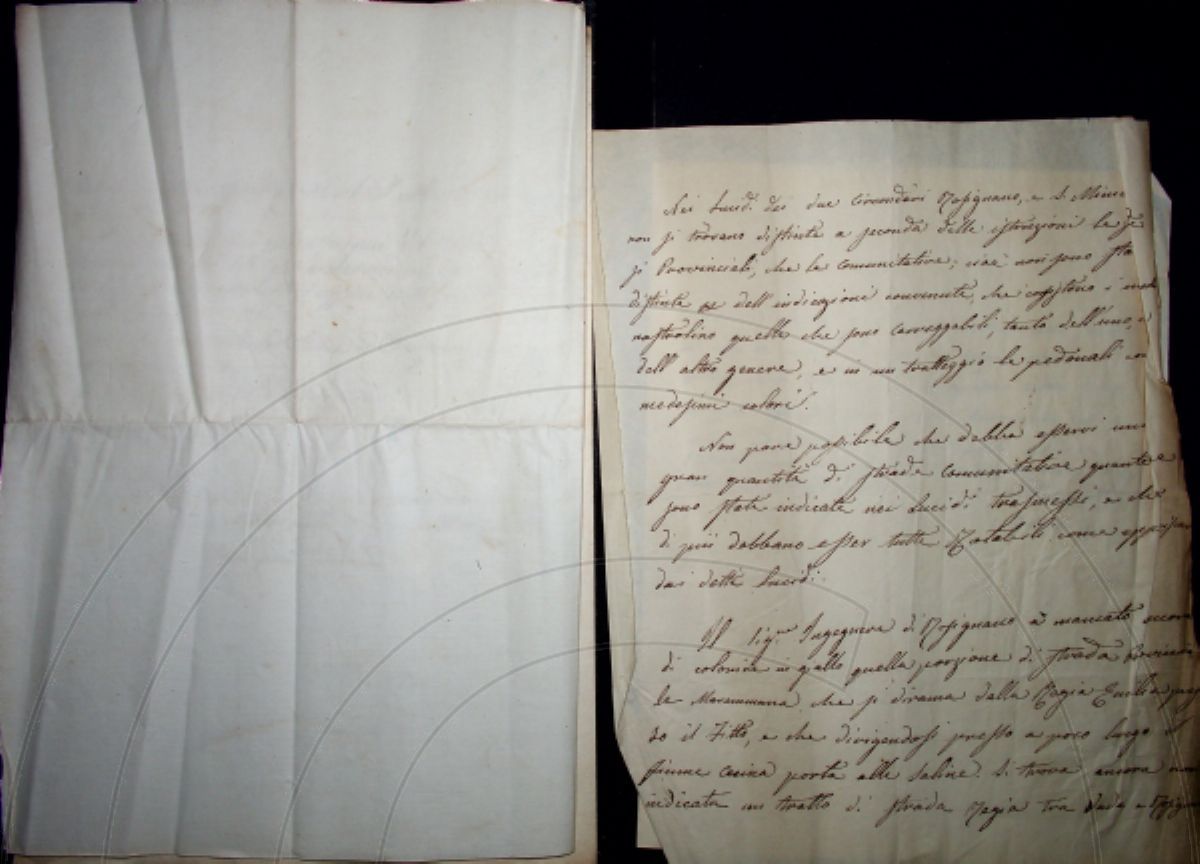 Nei Lucidi dei due Circondari Rosignano, e S. Minia
non si trovano distinte a seconda delle istruzioni le
si Provinciali, che le Comunitative; cioè non sono sta
distinte dell'indicazioni convenute, che
nastrolino quelle che sono carreggiabili, tanto dell'uno, e
dell'altro genere, e in un tratteggio le pedonali
medesimi colori.
Non pare possibile che debba esservi una
gran quantità di strade comunitative quante
sono state indicate nei Lucidi trasmessi, e che
di più debbano esser tutte Rotabili come
dai detti Lucidi.
Il Sig.re Ingegnere di Rosignano à mancato
di colorire in giallo quella porzione di strada Provincia
le Maremmana che si dirama dalla Regia Emilia
so il Fitto, e che dirigendosi presso a poco lungo il
fiume Cecina porta alle Saline. Si trova ancora non
indicata un tratto di strada Regia tra Vada e